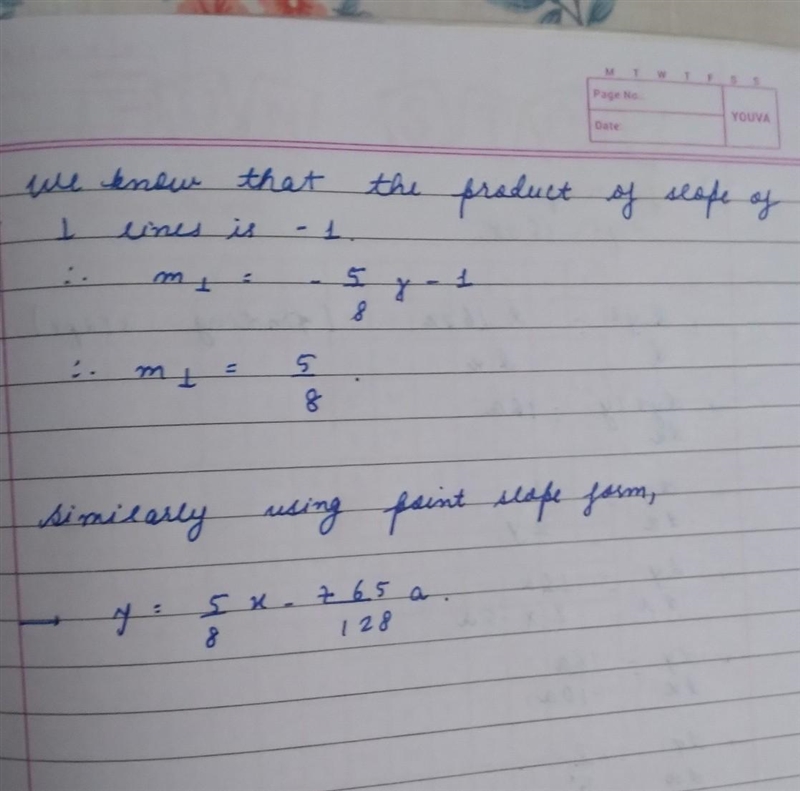 M T W T F S S
Page No.:
YOUVA
Date:
We know that the product of slope of
⊥ lines is -1.
∴ m⊥ = - 5/8 x - 1
∴ m⊥ = 5/8.
Similarly using point slope form,
→ y = 5/8 x - 765/128 a.